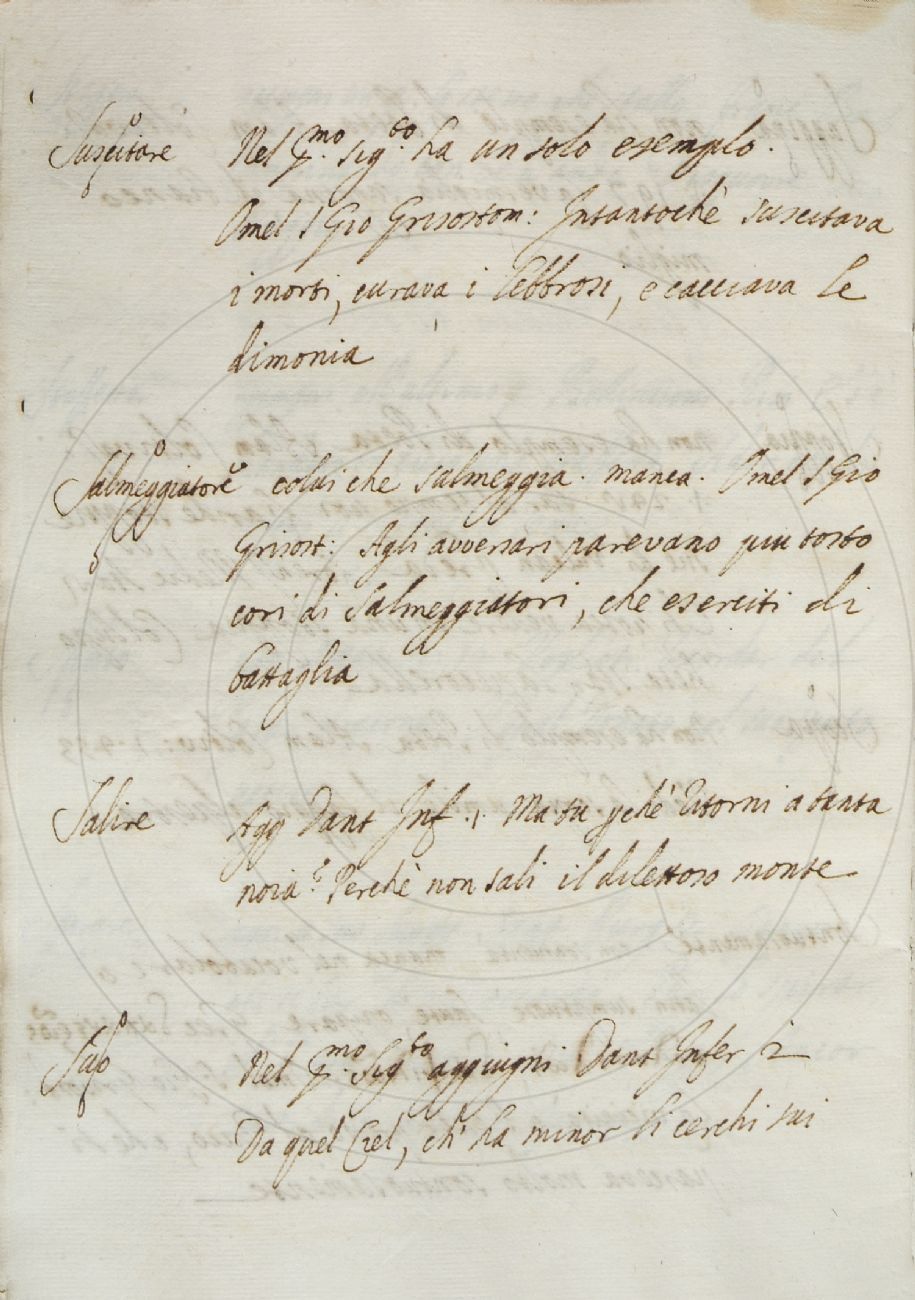 Suscitare Nel p.mo sig.to ha un solo esempio.
Omel S Gio Grisostom: Intantochè suscitava
i morti, curava i lebbrosi, e cacciava le
dimonia
Salmeggiatore colui che salmeggia. manca. Omel S Gio
Grisost: Agli avversari parevano piu tosto
cori di Salmeggiatori, che eserciti di
battaglia
Salire Agg Dant Inf. 1. Ma tu pchè ritorni a tanta
noia? Perchè non sali il dilettoso monte
Suo Nel p.mo Sig.to aggiugni Dant Infer 2
Da quel Ciel, ch' ha minor li cerchi sui